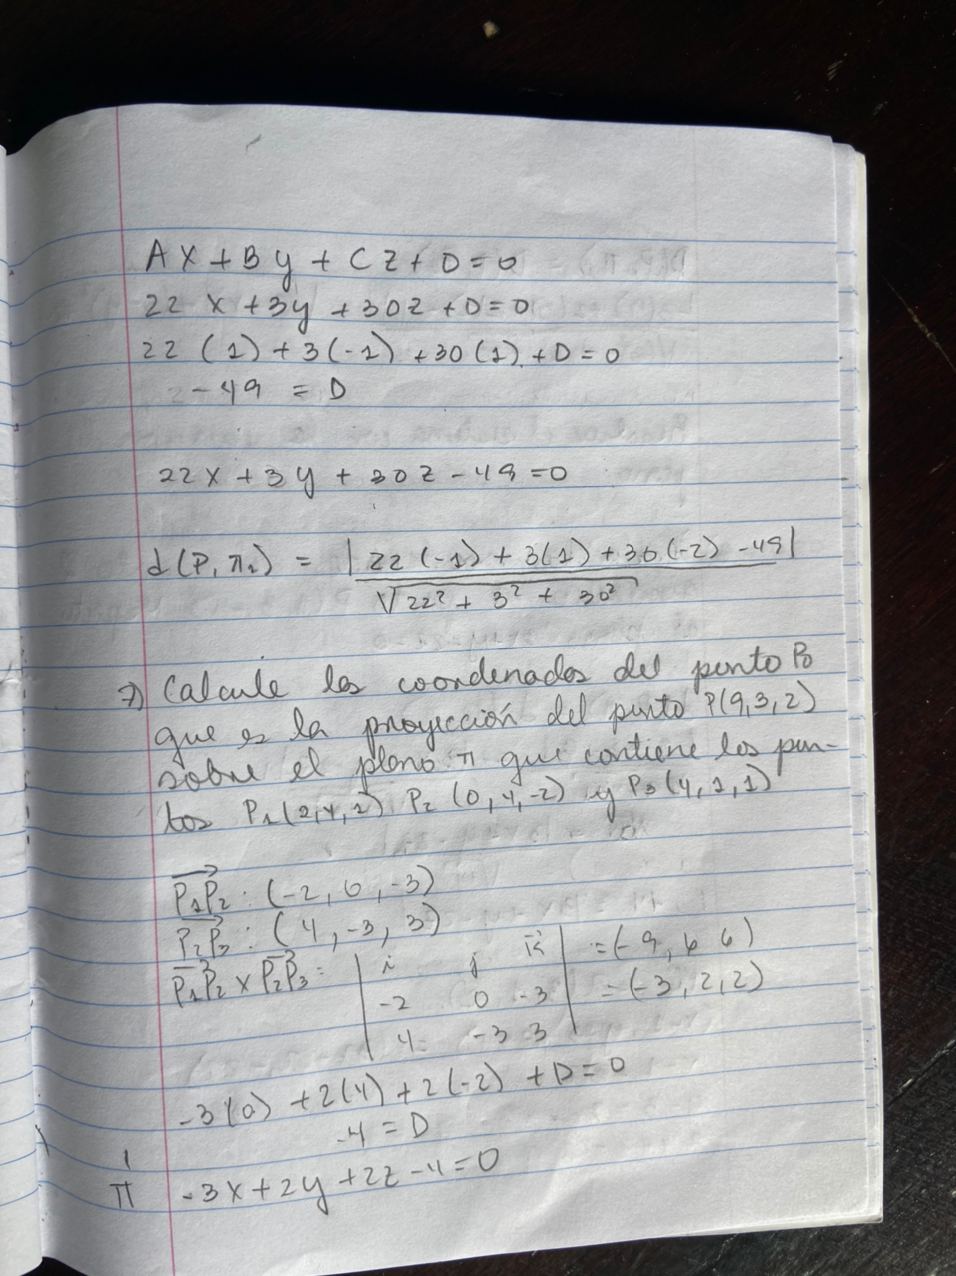 AX + By + CZ + D = 0
22 X + 3y + 30z + D = 0
22 (1) + 3(-1) + 30(1) + D = 0
-49 = D
22x + 3y + 30z - 49 = 0
d(P, π₁) = |22(-1) + 3(1) + 30(-2) - 49|
√22² + 3² + 30²
7) Calcule las coordenadas del punto P₀
que es la proyección del punto P(9,3,2)
sobre el plano π que contiene los pun-
tos P₁(2,4,1) P₂(0,4,-2) y P₃(4,1,1)
P₁P₂ : (-2, 0, -3)
P₂P₃ : (4, -3, 3)
P₁P₂ x P₂P₃ = | i j k | = (-9, 6 6)
-2 0 -3 = (-3, 2, 2)
4 -3 3
-3(0) + 2(4) + 2(-2) + D = 0
-4 = D
π -3x + 2y + 2z - 4 = 0